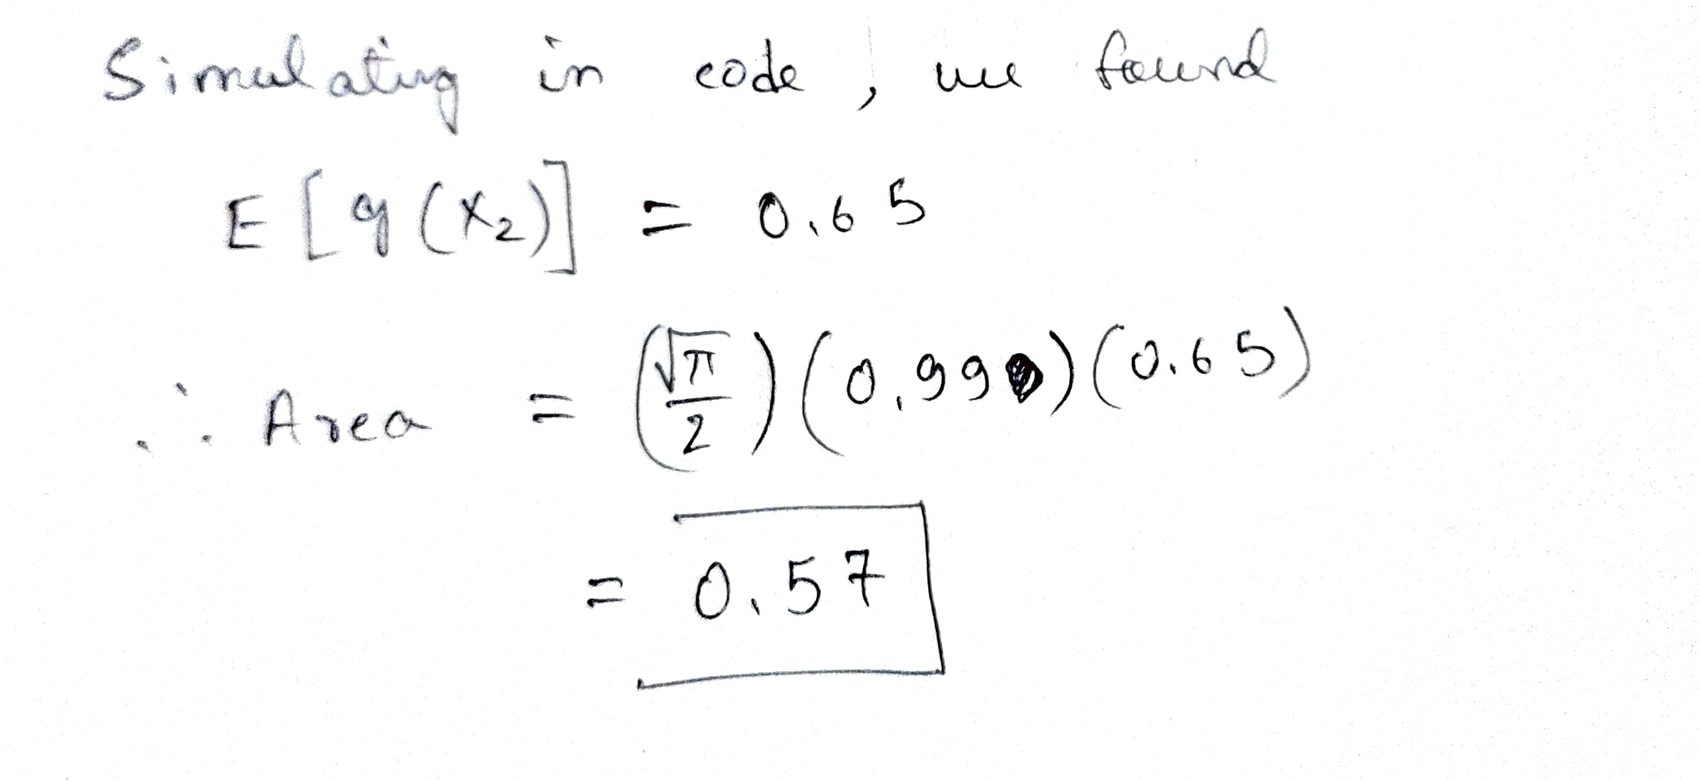 Simulating in code, we found
E[g(x₂)] = 0.65
∴ Area = (√π/2)(0.99)(0.65)
= 0.57